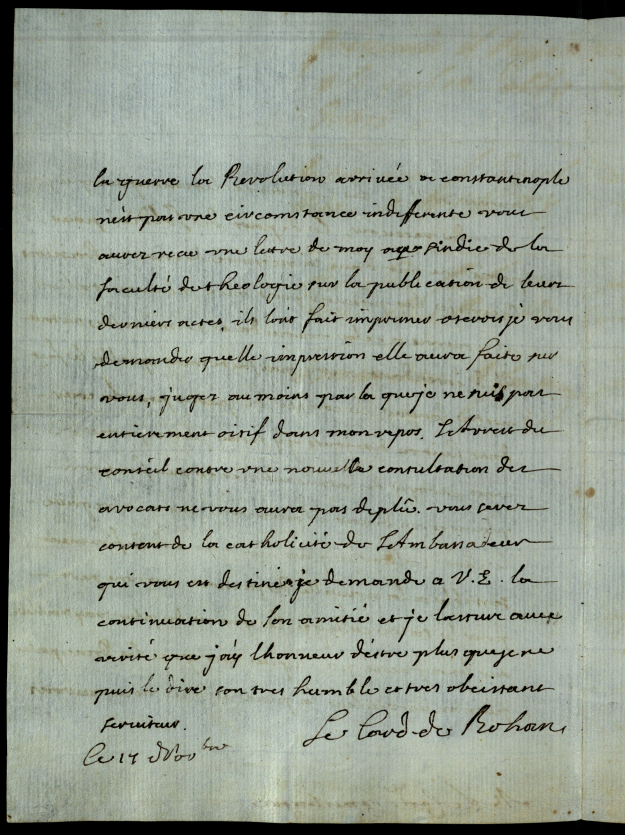 la guerre la Revolution arrivée a constantinople
n'est pas une circomstance indifferente vous
aurez receu une lettre de moy a sindic de la
faculté de theologie sur la publication de leurs
derniers actes, ils lont fait imprimer oserois je vous
demander quelle impression elle aura faite sur
vous, jugez au moins par la que je ne suis pas
entierement oisif dans mon repos. L'Arrest du
conseil contre une nouvelle consultation des
avocats ne vous aura pas deplû. vous serez
content de la catholicité de L'Ambassadeur
qui vous est destiné je demande a V.E. la
continuation de son amitié et je lassure avec
verité que j'ay lhonneur déstre plus que je ne
puis le dire son tres humble et tres obeissant
serviteur.
Le Card de Rohan
ce 17 Novbre